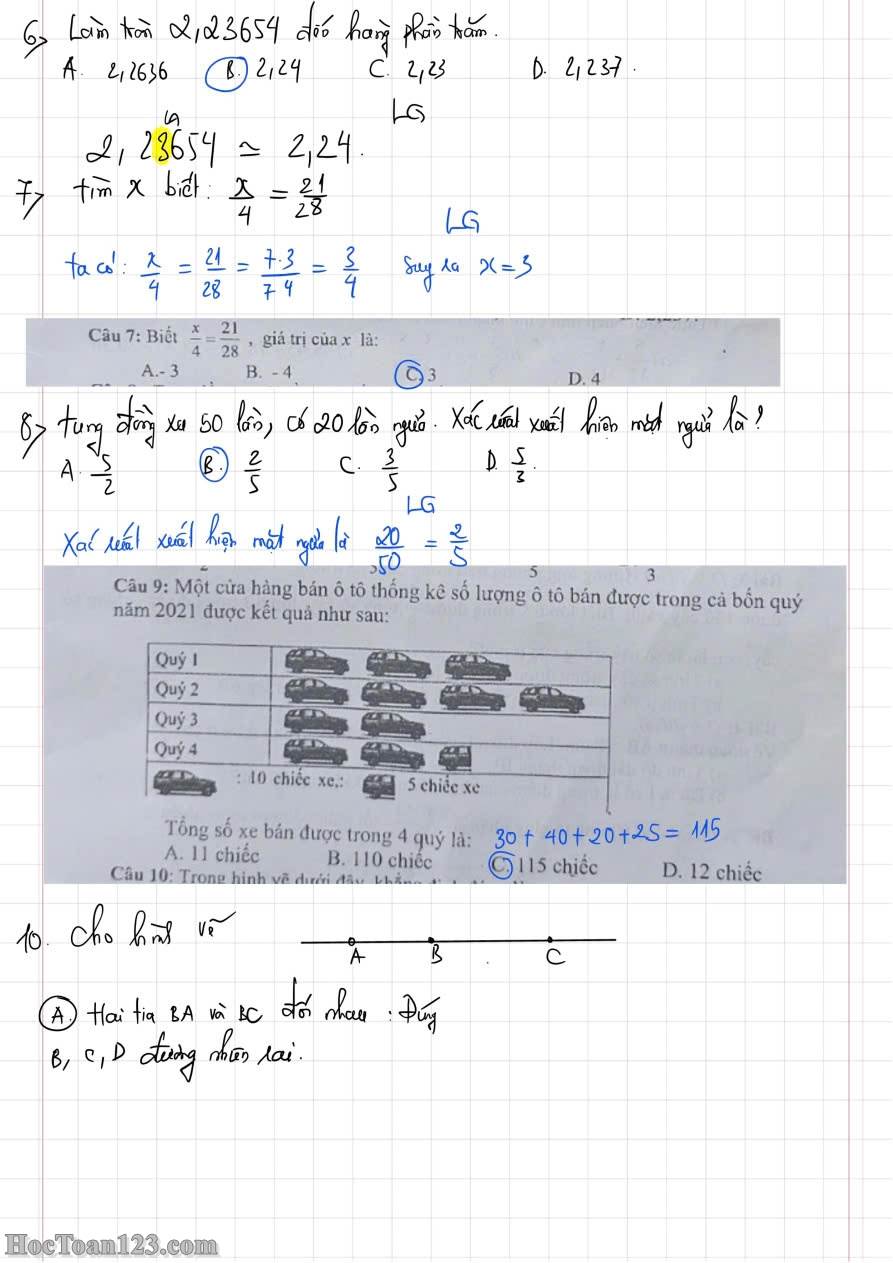 6> Làm tròn 2,23654 đến hàng phần trăm.
A. 2,2636 B. 2,24 C. 2,23 D. 2,237.
LG
2,23654 ≃ 2,24.
7> tìm x biết: x/4 = 21/28
LG
ta có: x/4 = 21/28 = 7.3/7 4 = 3/4 Suy ra x = 3
Câu 7: Biết x/4 = 21/28 , giá trị của x là:
A.- 3 B. - 4 C. 3 D. 4
8> tung đồng xu 50 lần, có 20 lần ngửa. Xác suất xuất hiện mặt ngửa là?
A. 5/2 B. 2/5 C. 3/5 D. 5/3.
LG
Xác suất xuất hiện mặt ngửa là 20/50 = 2/5
5 3
Câu 9: Một cửa hàng bán ô tô thống kê số lượng ô tô bán được trong cả bốn quý
năm 2021 được kết quả như sau:
Quý 1
Quý 2
Quý 3
Quý 4
: 10 chiếc xe,: 5 chiếc xe
Tổng số xe bán được trong 4 quý là: 30 + 40 + 20 + 25 = 115
A. 11 chiếc B. 110 chiếc C. 115 chiếc D. 12 chiếc
Câu 10: Trong hình vẽ dưới đây,
10. Cho hình vẽ
A B C
A. Hai tia BA và BC đối nhau : Đúng
B, C, D đường nhiên sai.
HocToan123.com